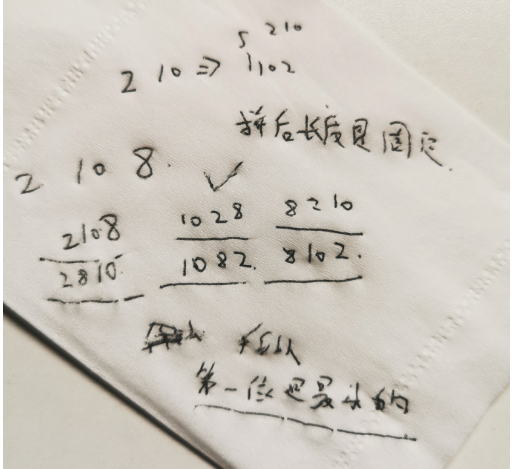 210
2 10 ⇒ 102
拼后长度是固定.
2 10 8.
2108 1028 8210
2810 1082. 8102.
所以
第一位是最小的